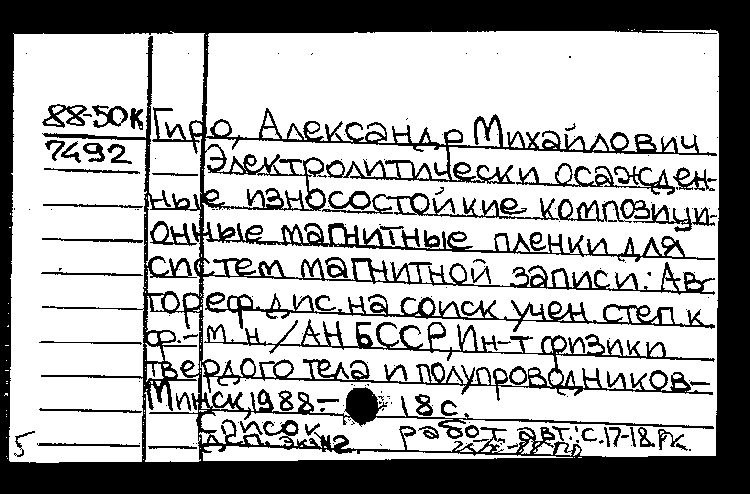 88-50К Гиро, Александр Михайлович
7492 Электролитически осажден-
ные износостойкие композици-
онные магнитные пленки для
систем магнитной записи: Ав-
тореф. дис. на соиск. учен. степ. к.
ф.-м. н. / АН БССР, Ин-т физики
твердого тела и полупроводников-
Минск, 1988.- 18 с.
Список работ авт.: с. 17-18. РК.
5 ДСП. Экз. №2.